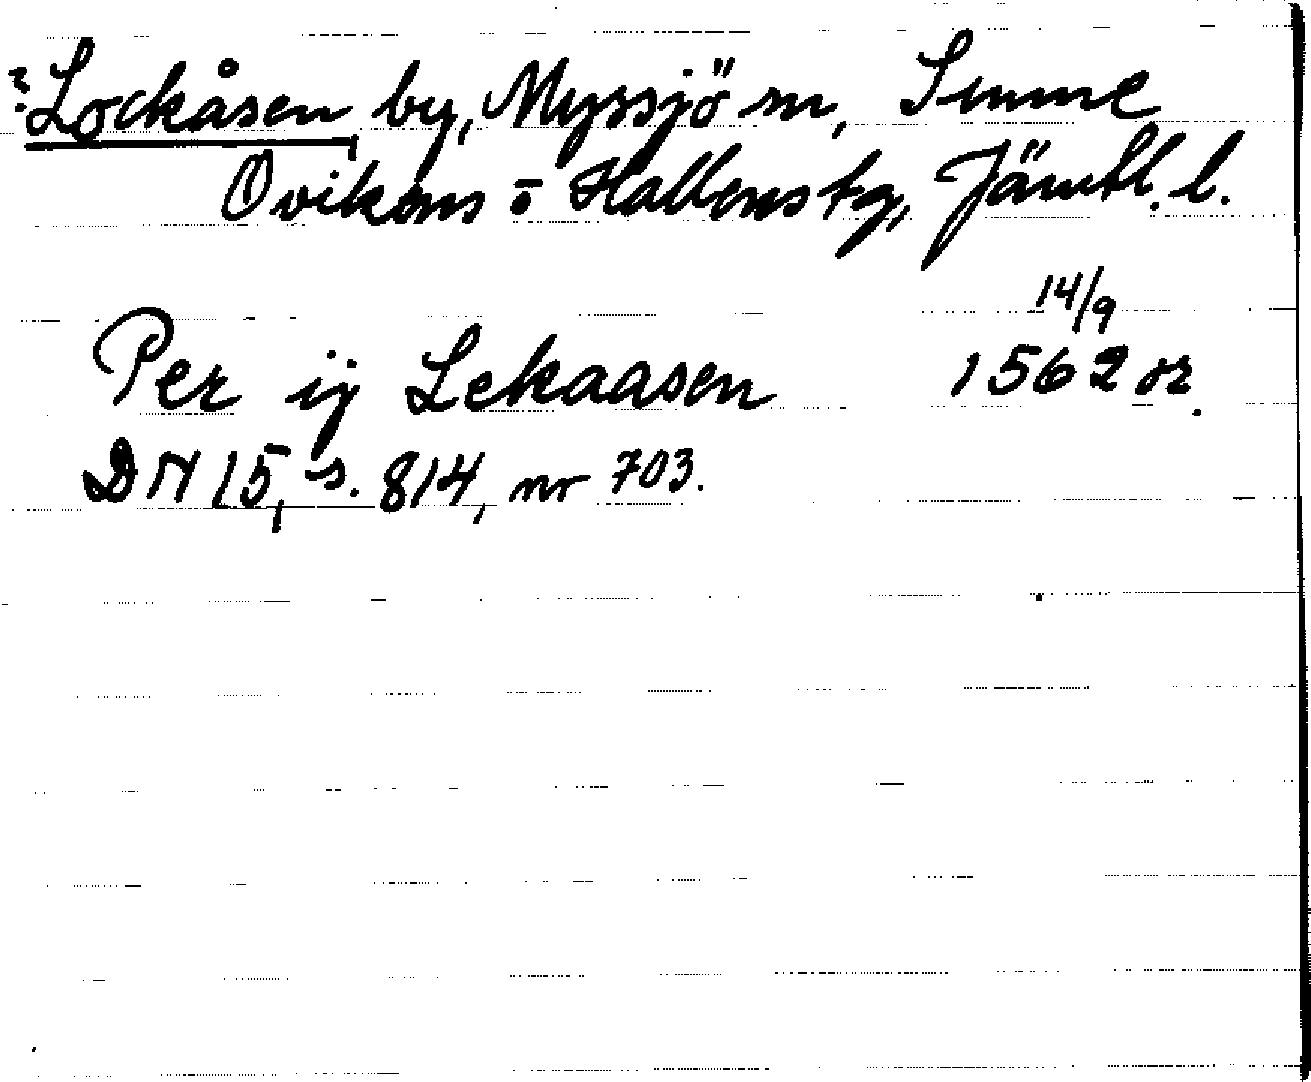 ? Lockåsen by, Myssjö sn, Sunne
Ovikens o Hallens tg, Jämtl. l.
14/9
Per ij Lekaasen 1562 or.
DN 15, s. 814, nr 703.